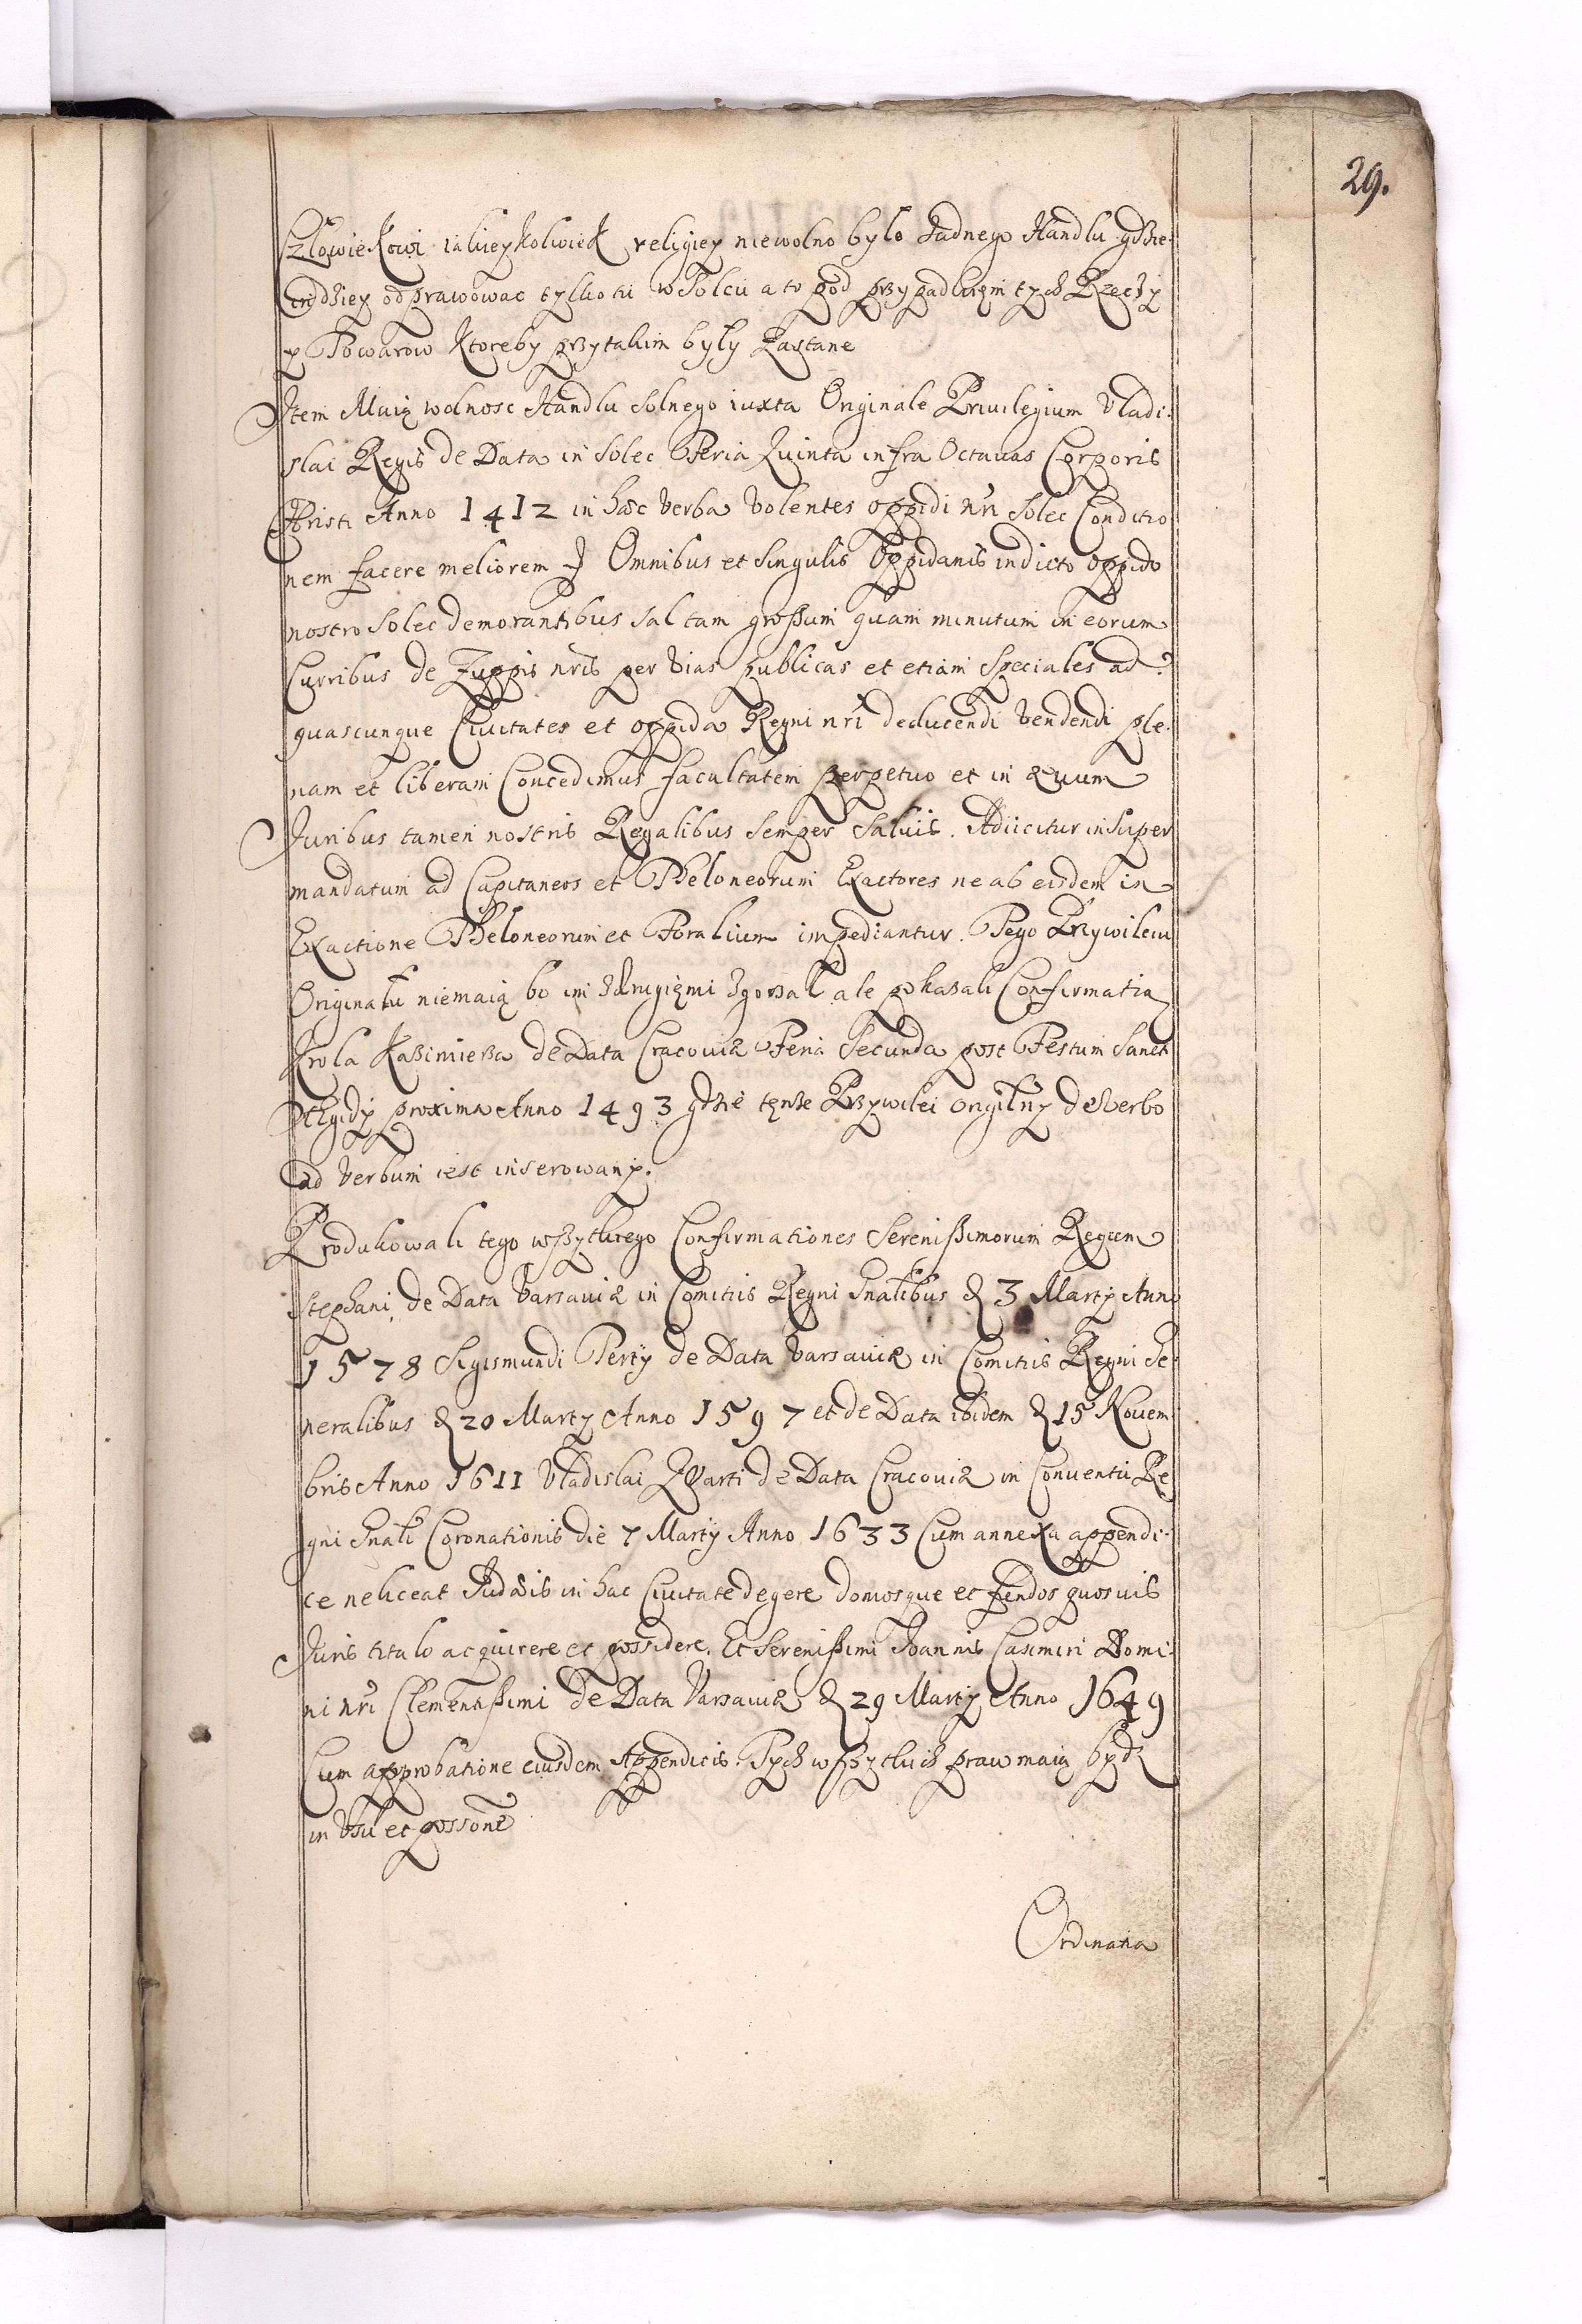 29.
Człowiekowi iakieykolwiek religiey niewolno było żadnego Handlu gdzie-
indziey odprawowac tylko tu w Solcu a to pod przypadkiem tych Rzeczy
y Towarow ktoreby przytakim były Zastane
Item Maią wolnosc Handlu Solnego iuxta Originale Priuilegium Vladi-
slai Regis de Data in Solec Feria Quinta infra Octauas Corporis
Christi Anno 1412 in hæc verba Volentes oppidi nri Solec Conditio
nem facere meliorem Omnibus et Singulis Oppidanis in dicto oppido
nostro Solec demorantibus sal tam grossum quam minutum in eorum
Curribus de Zuppis nris per Vias publicas et etiam Speciales ad
quascunque Ciuitates et oppida Regni nri deducendi Vendendi ple-
nam et liberam Concedimus facultatem perpetuo et in æuum
Juribus tamen nostris Regalibus Semper Saluis. Adiicitur insuper
mandatum ad Capitaneos et Theloneorum Exactores ne ab eisdem in
Exactione Theloneorum et Foralium impediantur. Tego Przywileiu
Originału niemaią bo im z drugiemi zgorzał ale pokazali Confirmatią
Krola Kazimierza de Data Cracouiæ Feria Secunda post Festum Sancti
Ægidy proxima Anno 1493 gdzie tenże Przywilei origilny de Verbo
ad Verbum iest inserowany.
Produkowali tego wszytkiego Confirmationes Serenissimorum Regum
Stephani de Data Varsauiæ in Comitiis Regni Gnalibus d 3 Marty Anno
1578 Sigismundi Terty de Data Varsauiæ in Comitiis Regni Ge-
neralibus d 20 Marty Anno 1597 et de Data ibidem d 15 Nouem
bris Anno 1611 Vladislai Quarti de Data Cracouiæ in Conuentu Re
gni Gnali Coronationis die 7 Marty Anno 1633 Cum annexa appendi-
ce ne liceat Judæis in hac Ciuitate degere domosque et fundos quosuis
Juris titulo acquirere et possidere. Et Serenissimi Joannis Casimiri Domi-
ni nri Clementissimi de Data Varsauiæ d 29 Marty Anno 1649
Cum approbatione eiusdem Appendicis. Tych wszytkich praw maią bydz
in Vsu et possone
Ordinatia